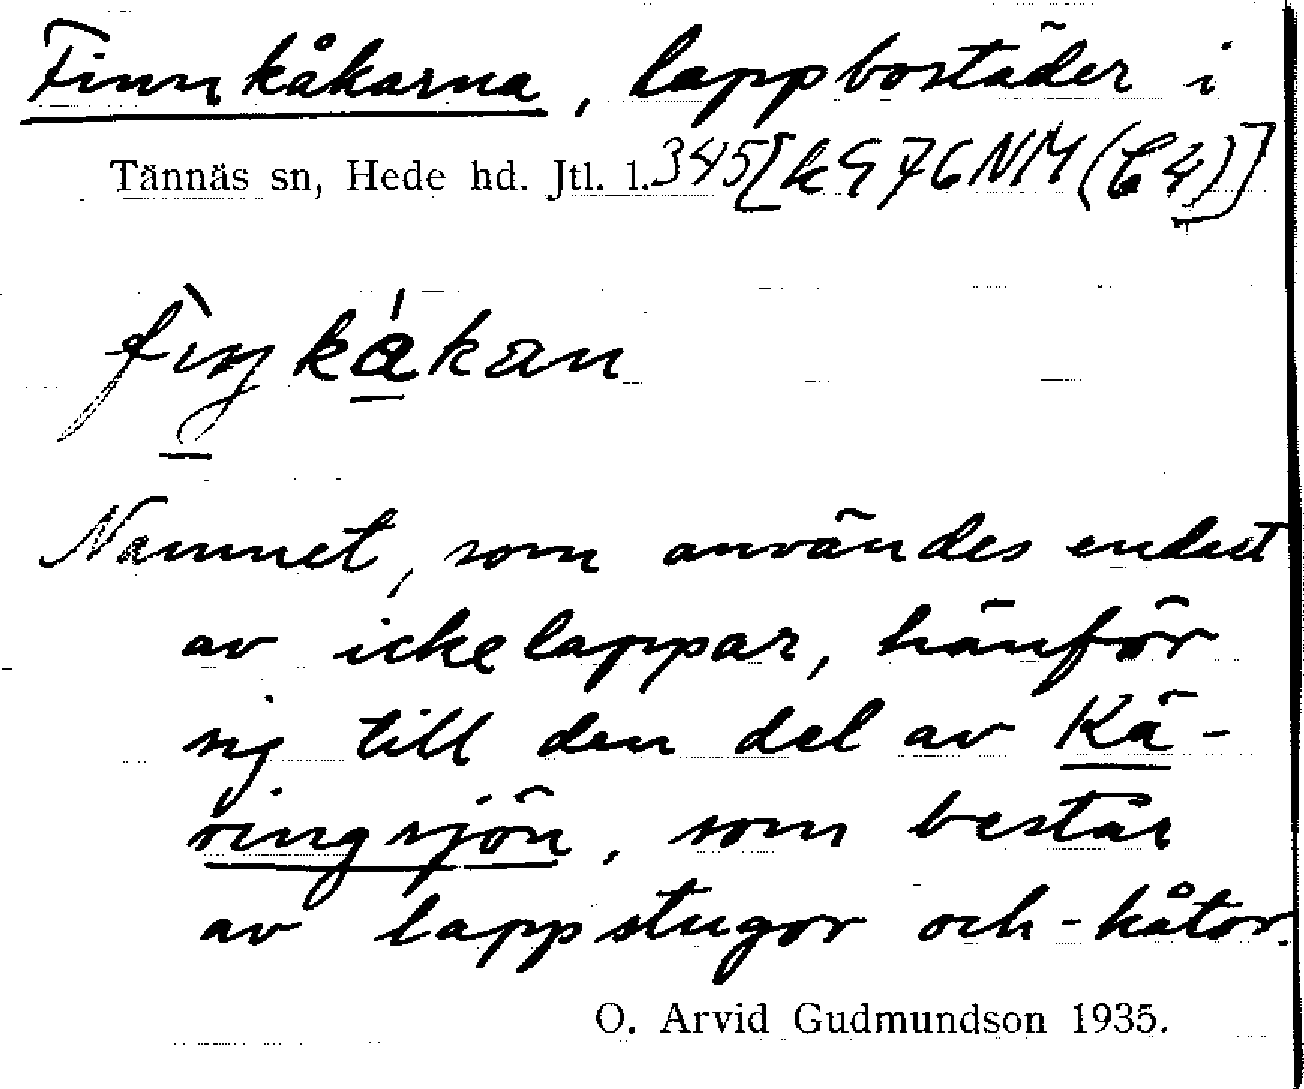 Finnkåkarna, lappbostäder i
Tännäs sn, Hede hd. Jtl. l. 345[k976NM(C4)]
Namnet, som användes endast
av icke lappar, hänför
sig till den del av Kä-
ringsjön, som består
av lappstugor och -kåtor.
O. Arvid Gudmundson 1935.